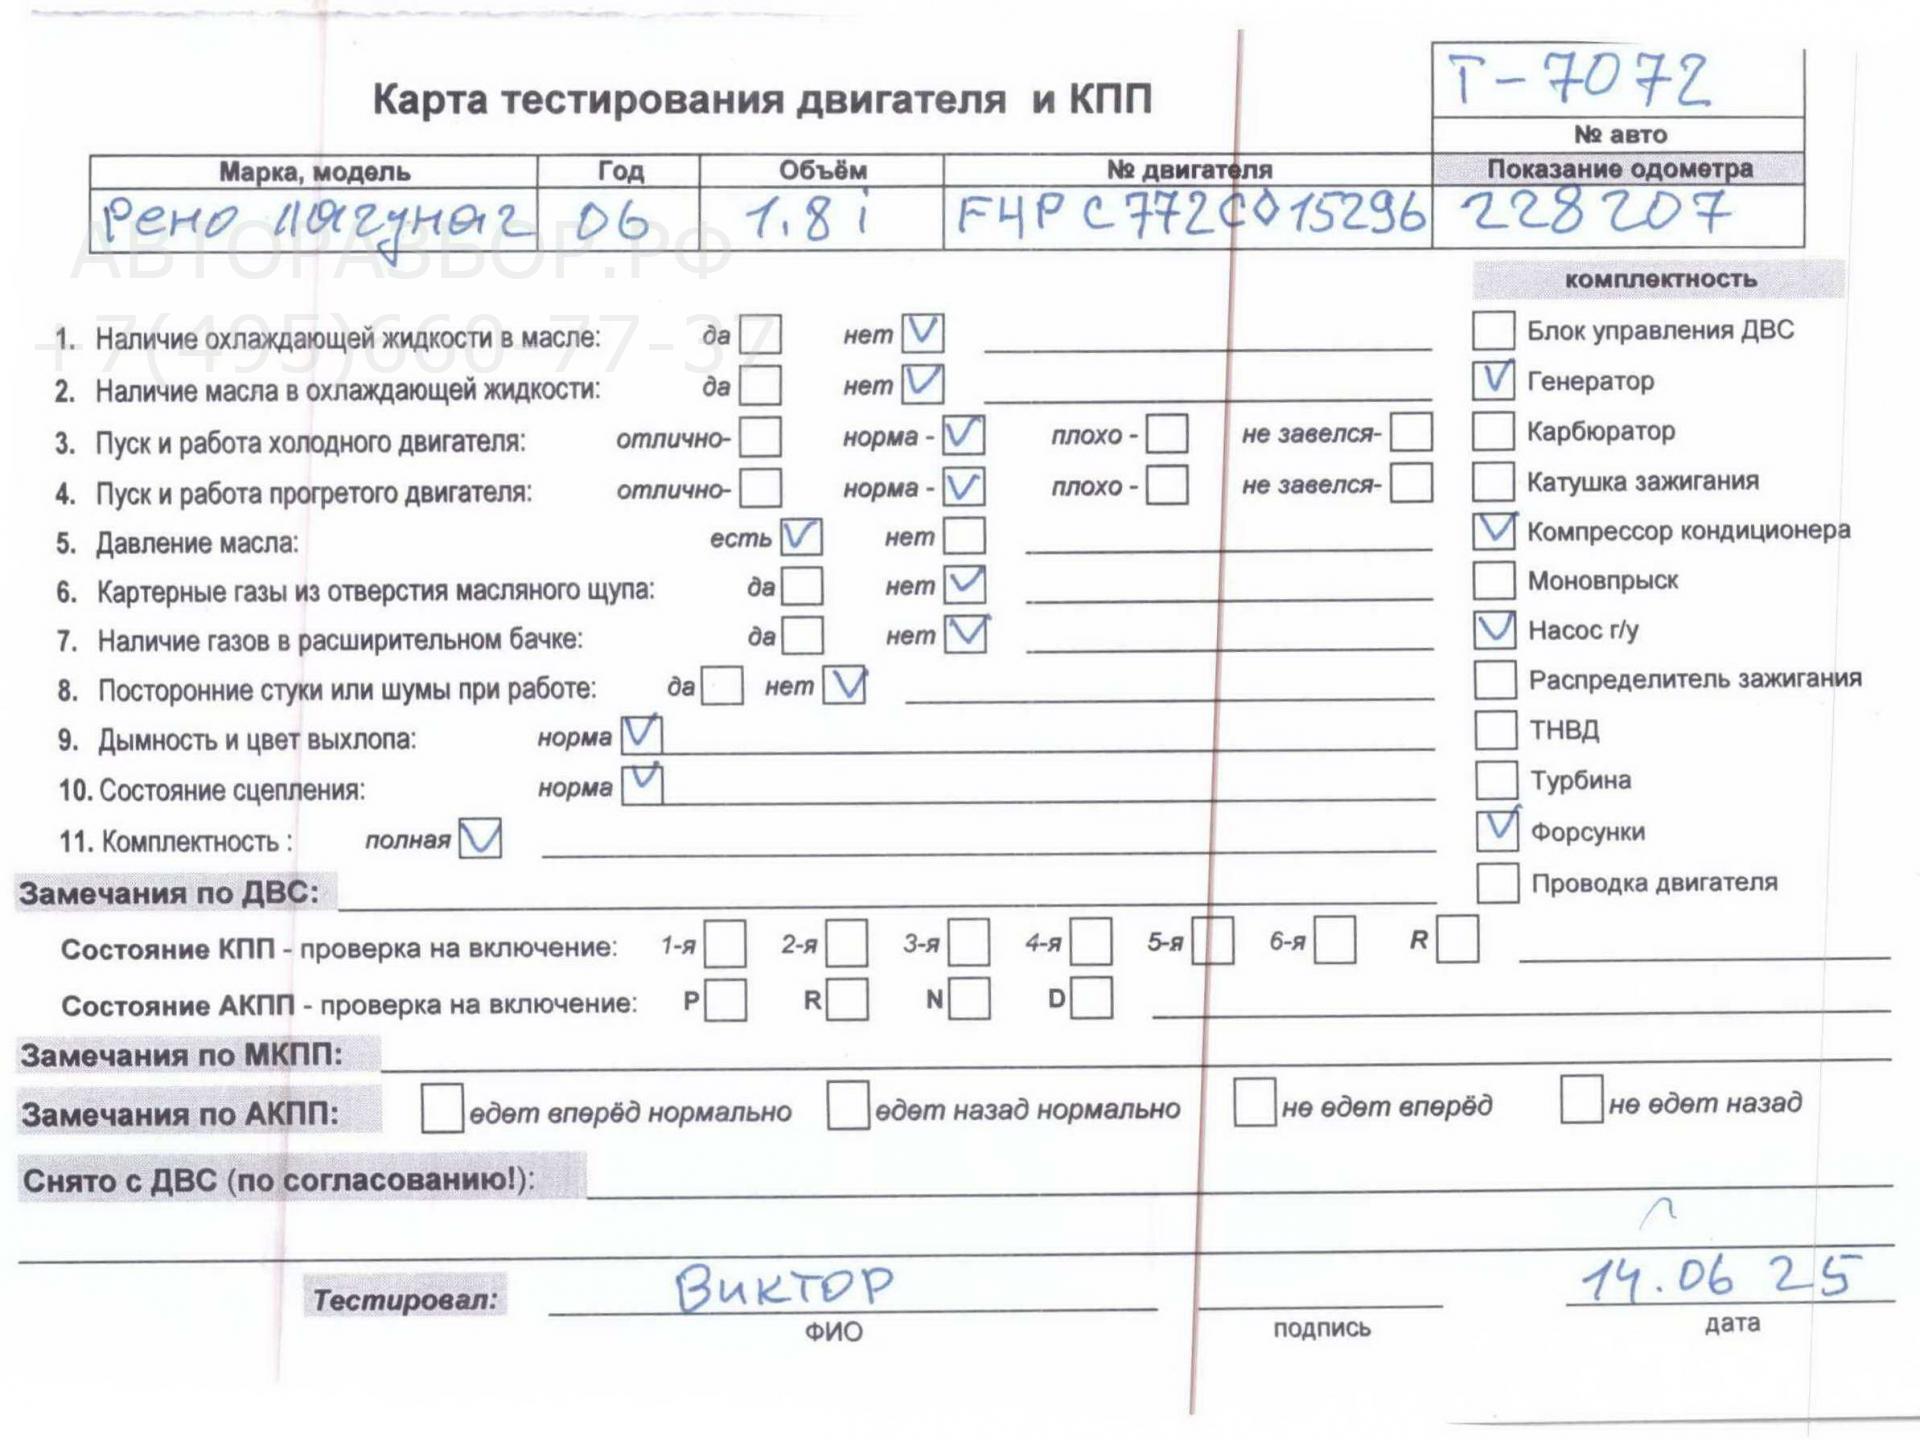 Т-7072
Карта тестирования двигателя и КПП
№ авто
Марка, модель Год Объём № двигателя Показание одометра
Рено Лагуна 2 06 1.8 i F4P C772C015296 228207
АВТОРАЗБОР.РФ
+7(495)660-77-37
комплектность
1. Наличие охлаждающей жидкости в масле: да нет Блок управления ДВС
2. Наличие масла в охлаждающей жидкости: да нет Генератор
3. Пуск и работа холодного двигателя: отлично- норма - плохо - не завелся- Карбюратор
4. Пуск и работа прогретого двигателя: отлично- норма - плохо - не завелся- Катушка зажигания
5. Давление масла: есть нет Компрессор кондиционера
6. Картерные газы из отверстия масляного щупа: да нет Моновпрыск
7. Наличие газов в расширительном бачке: да нет Насос г/у
8. Посторонние стуки или шумы при работе: да нет Распределитель зажигания
9. Дымность и цвет выхлопа: норма ТНВД
10. Состояние сцепления: норма Турбина
11. Комплектность : полная Форсунки
Замечания по ДВС: Проводка двигателя
Состояние КПП - проверка на включение: 1-я 2-я 3-я 4-я 5-я 6-я R
Состояние АКПП - проверка на включение: P R N D
Замечания по МКПП:
Замечания по АКПП: едет вперёд нормально едет назад нормально не едет вперёд не едет назад
Снято с ДВС (по согласованию!):
Тестировал: Виктор 14.06 25
ФИО подпись дата